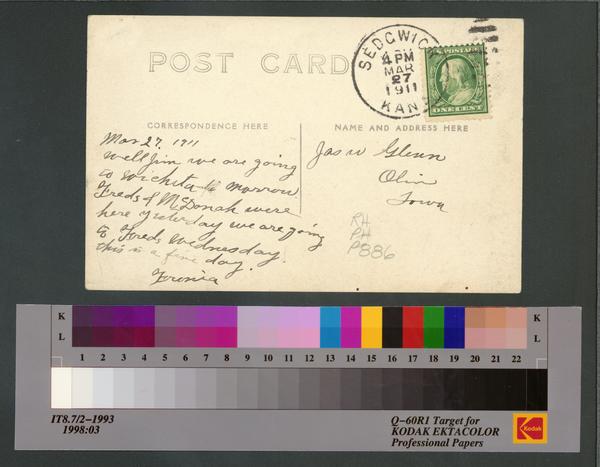 POST CARD
SEDGWICK
4 PM
MAR
27
1911
KAN
U.S. POSTAGE
ONE CENT
CORRESPONDENCE HERE
NAME AND ADDRESS HERE
Mar 27, 1911
Well Jim we are going
to Wichita to morrow.
Freds & McDonah were
here yesterday we are going
to Freds Wednesday.
this is a fine day.
Jas W Glenn
Olin
Iowa
RH
PH
P886
K
L
1 2 3 4 5 6 7 8 9 10 11 12 13 14 15 16 17 18 19 20 21 22
K
L
IT8.7/2-1993
1998:03
Q-60R1 Target for
KODAK EKTACOLOR
Professional Papers
Kodak